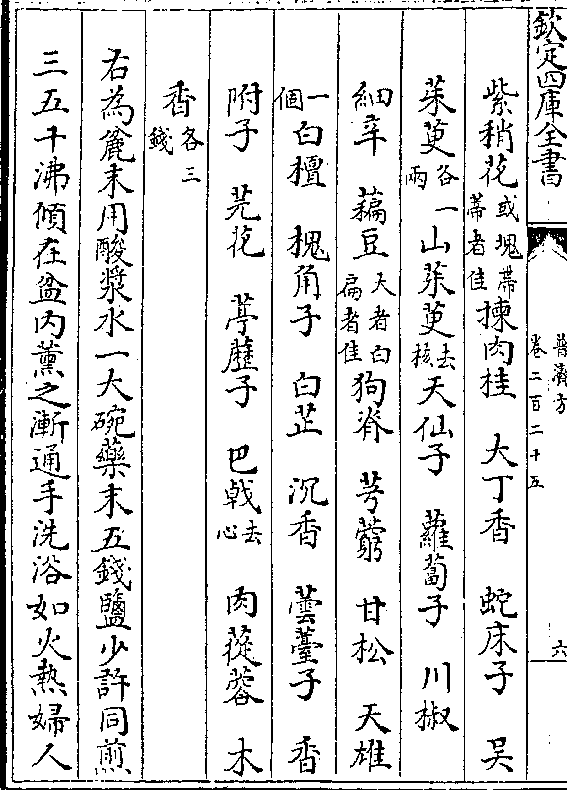 欽定四庫全書
普濟方
卷二百二十五
六
紫稍花或塊蒂蒂者佳揀肉桂 大丁香 蛇床子 吴
茱萸各一兩山茱萸去核天仙子 蘿蔔子 川椒
細辛 藊豆大者白扁者佳狗脊 芎藭 甘松 天雄
一個白檀 槐角子 白芷 沉香 蕓薹子 香
附子 芫花 葶藶子 巴戟去心 肉蓯蓉 木
香各三錢
右為麄末用酸漿水一大碗藥末五錢鹽少許同煎
三五十沸傾在盆内薰之漸通手洗浴如火熱婦人